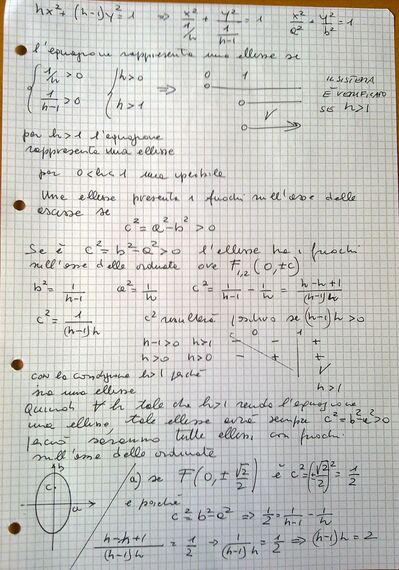 hx² + (h-1)y² = 1 ⇒ x²/(1/h) + y²/(1/(h-1)) = 1 x²/a² + y²/b² = 1
l'equazione rappresenta una ellisse se
{ 1/h > 0 { h > 0 ⇒ 0 1 IL SISTEMA
{ 1/(h-1) > 0 { h > 1 V È VERIFICATO
SE h > 1
per h>1 l'equazione
rappresenta una ellisse
per 0<h<1 una iperbole
Una ellisse presenta i fuochi sull'asse delle
ascisse se
c² = a² - b² > 0
Se è c² = b² - a² > 0 l'ellisse ha i fuochi
sull'asse delle ordinate ove F₁,₂ (0, ±c)
b² = 1/(h-1) a² = 1/h c² = 1/(h-1) - 1/h = (h-h+1)/((h-1)h)
c² = 1/((h-1)h) c² risulterà positivo se (h-1)h > 0
0 1
h-1>0 h>1 - - +
h>0 h>0 - + +
V
h>1
con la condizione h>1 perché
sia una ellisse
Quindi ∀ h tale che h>1 rende l'equazione
una ellisse, tale ellisse avrà sempre c² = b² - a² > 0
perciò saranno tutte ellissi con fuochi
sull'asse delle ordinate
b
c
a
a) se F(0, ± √2/2) è c² = (±√2/2)² = 1/2
e poiché
c² = b² - a² ⇒ 1/2 = 1/(h-1) - 1/h
(h-h+1)/((h-1)h) = 1/2 ⇒ 1/((h-1)h) = 1/2 ⇒ (h-1)h = 2